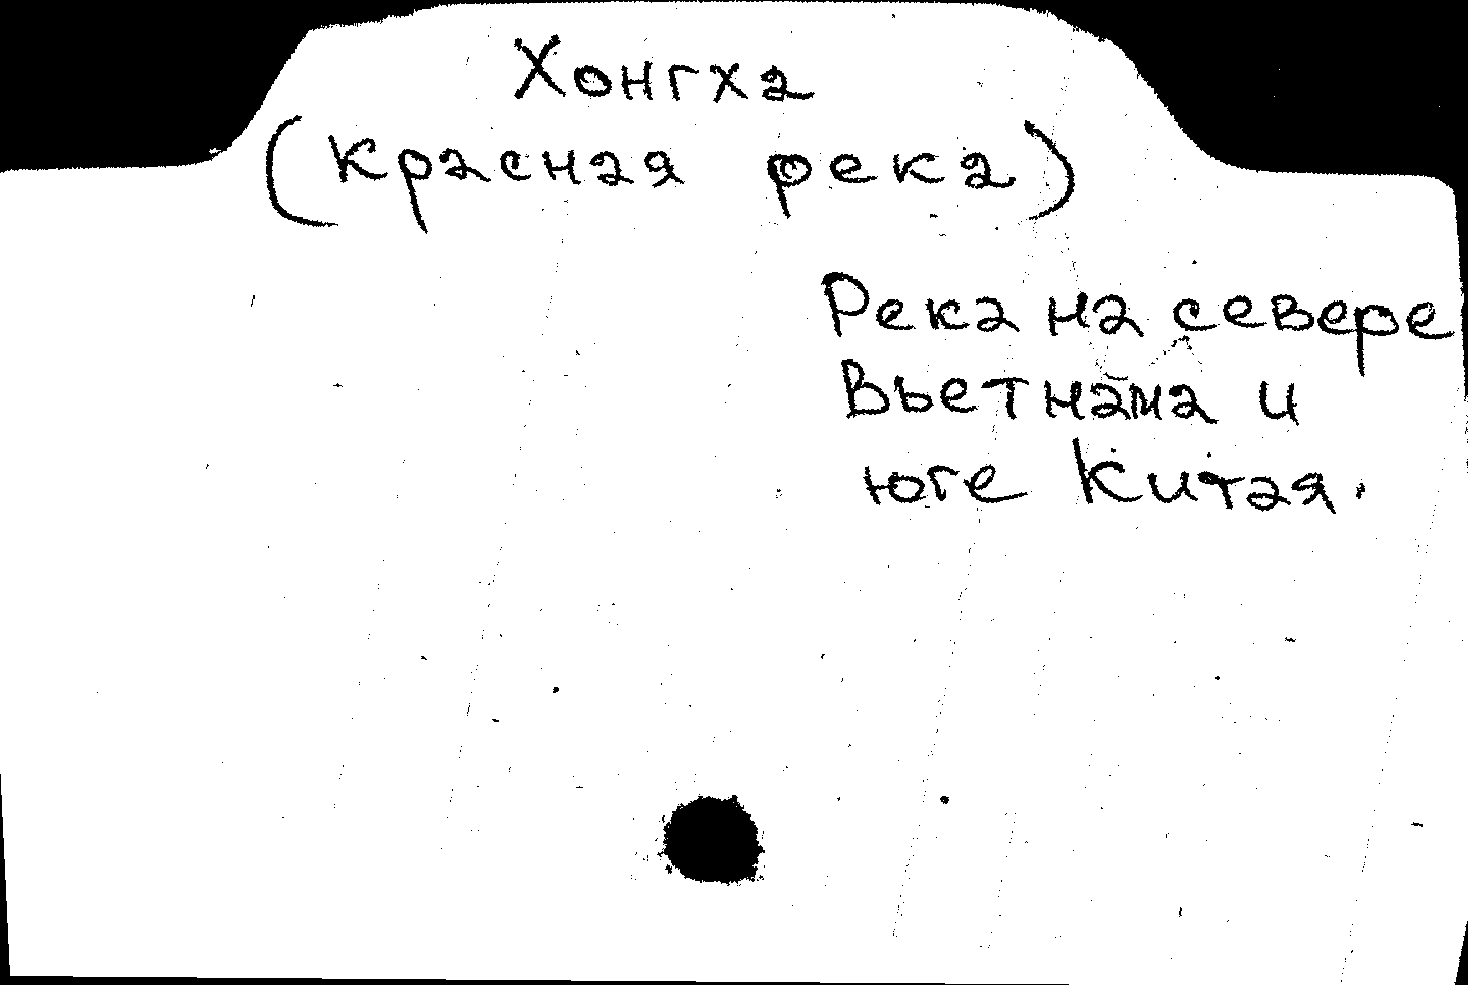 Хонгха
(Красная река)
Река на севере
Вьетнама и
юге Китая.